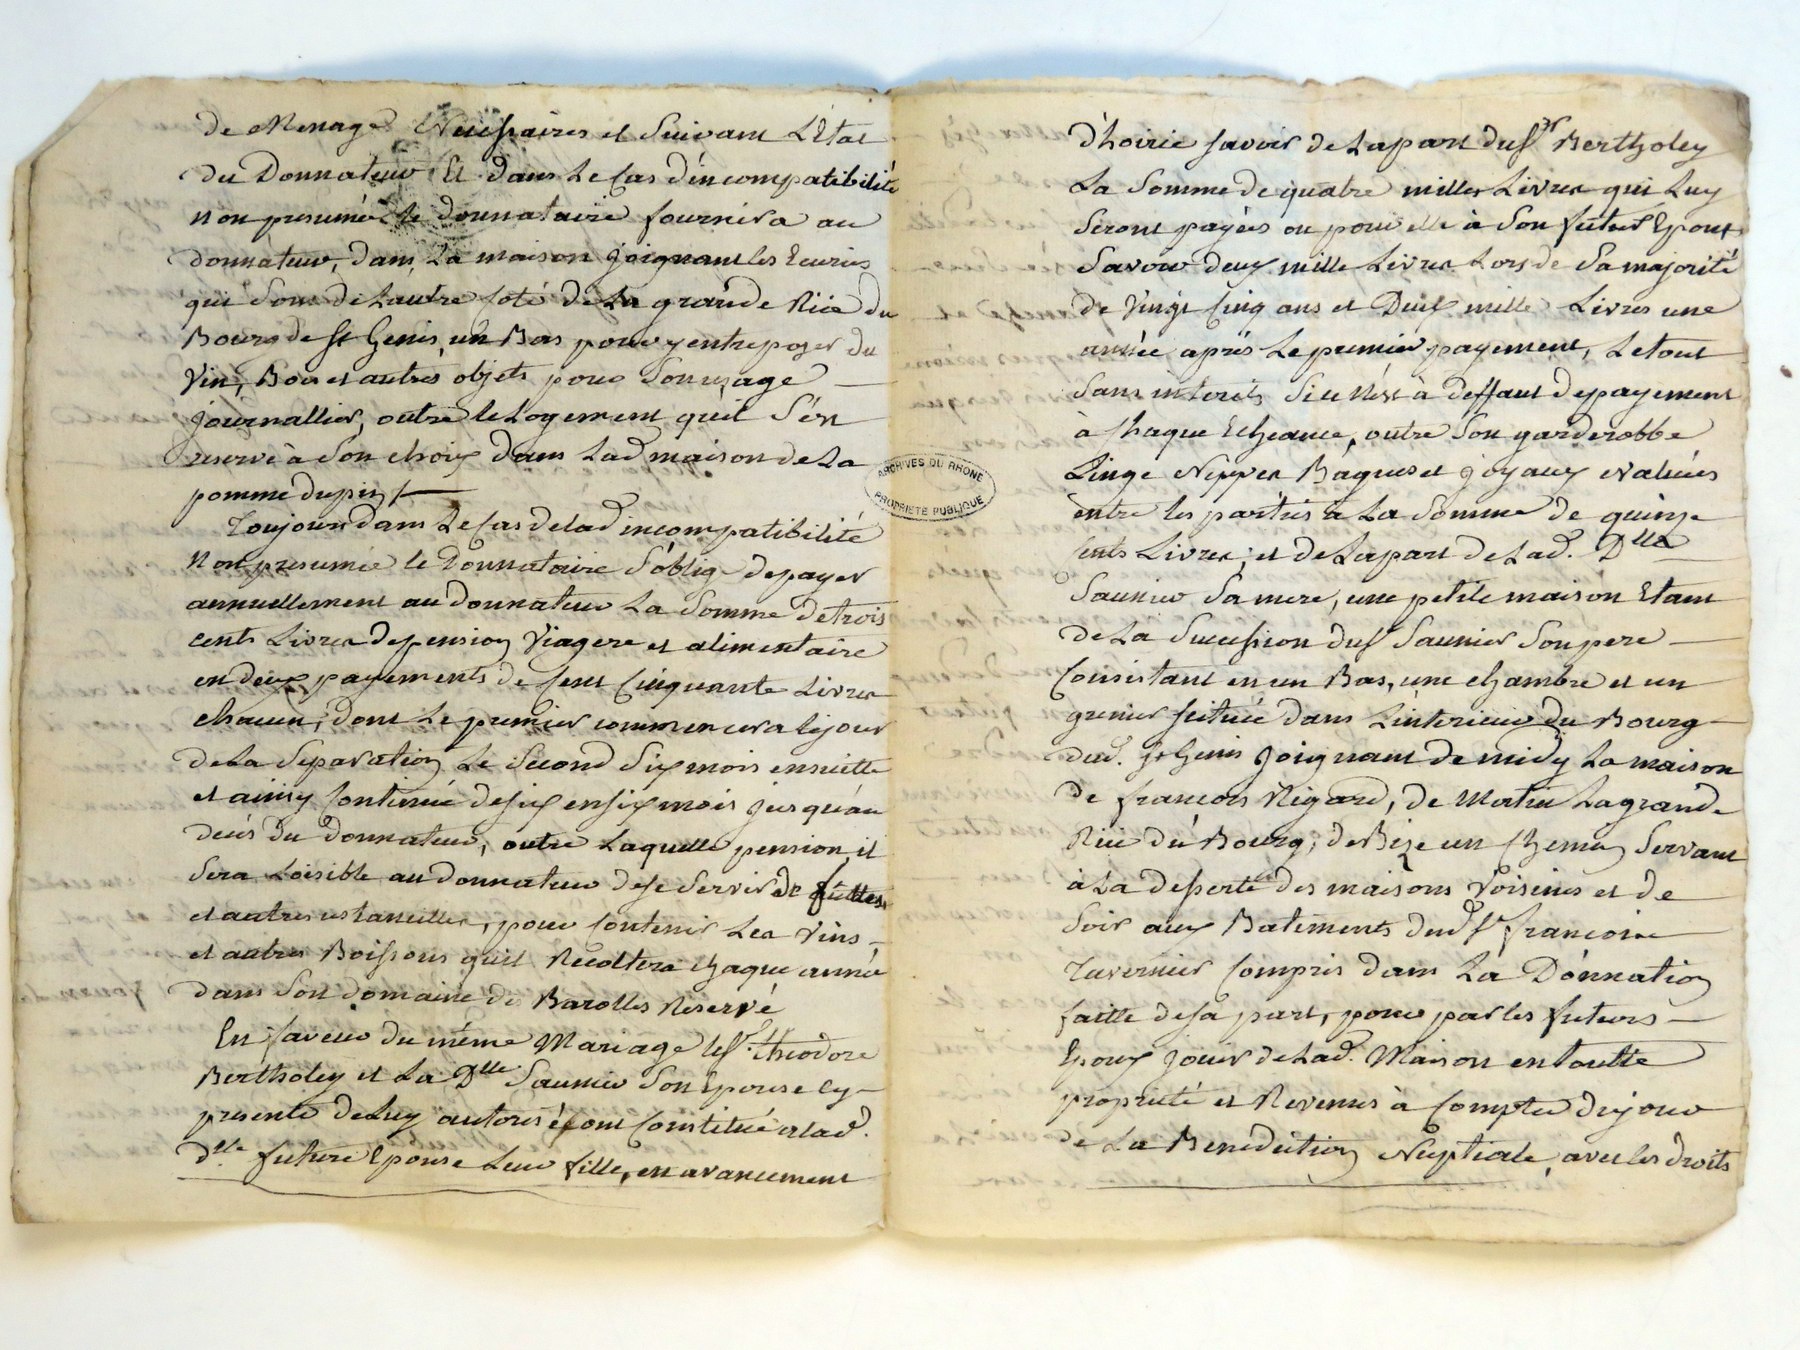 de Menage Necessaires et Suivant L'Etat
du Donnateur Et dans Le Cas d'incompatibilité
non presumée le donnataire fournira au
donnateur, dans La maison joignant les Ecuries
qui Sont de Lautre Coté de La grande Rüe du
Bourg de St Genis, un Bas pour y entreposer du
Vin, Bois et autres objets pour Son usage
journallier, outre le Logement quil S'en
reservé à Son choix dans Lad. maison de La
pomme dupin /.
Toujours dans Le Cas de lad incompatibilité
Non presumée le Donnataire S'oblige de payer
annuellement au donnateur La Somme de trois
cents Livres de pension Viagere et alimentaire
en deux payements de Cent Cinquante Livres
chacun, dont Le premier commencera le jour
de La Separation Le Second Six mois ensuitte
et ainsy Continué de six en six mois jusqu'au
decés du donnateur, outre Laquelle pension, il
Sera Loisible au donnateur de se Servir de futtes
et autres ustancilles, pour Contenir Les Vins
et autres Boissons quil Recoltera chaque année
dans Son domaine de Barolles Reservé
En faveur du même Mariage le Sr. Theodore
Bertholey et La Dlle Saunier Son Epouse Cy
presente de Luy autorisée ont Constitué a lad.
dlle future Epouse Leur fille, en avancement
ARCHIVES DU RHONE
PROPRIETE PUBLIQUE
d'hoirie savoir de La part du Sr Bertholey
La Somme de quatre milles Livres qui Luy
Seront payées ou pour elle à Son futur Epoux
Savoir deux mille Livres Lors de Sa majorité
de Vingt Cinq ans et Deux mille Livres une
année après Le premier payement, Le tout
Sans interets Si ce N'est à deffaut de payement
à Chaque Echeance, outre Son garderobbe
Linge Nippes Bagues et joyaux evalués
entre les parties à La Somme de quinze
cents Livres; et de La part de Lad. Dlle
Saunier Sa mere, une petite maison Etant
de La Succession du Sr Saunier Son pere
Consistant en un Bas, une chambre et un
grenier scituée dans L'interieur du Bourg
dud. St Genis Joignant de midy La maison
de francois Rigard, de Matin La grande
Rüe du Bourg; de Bize un Chemin Servant
à La desserte des maisons Voisines et de
Soir aux Batiments dud Sr francois
Tavernier Compris dans La Donnation
faitte de sa part, pour par les futurs
Epoux jouir de Lad. Maison en toutte
proprieté et Revenus à Compter du jour
de La Benediction Nuptiale, avec les droits